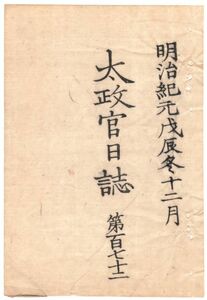 明治紀元戊辰冬十二月
太政官日誌
第百七十二